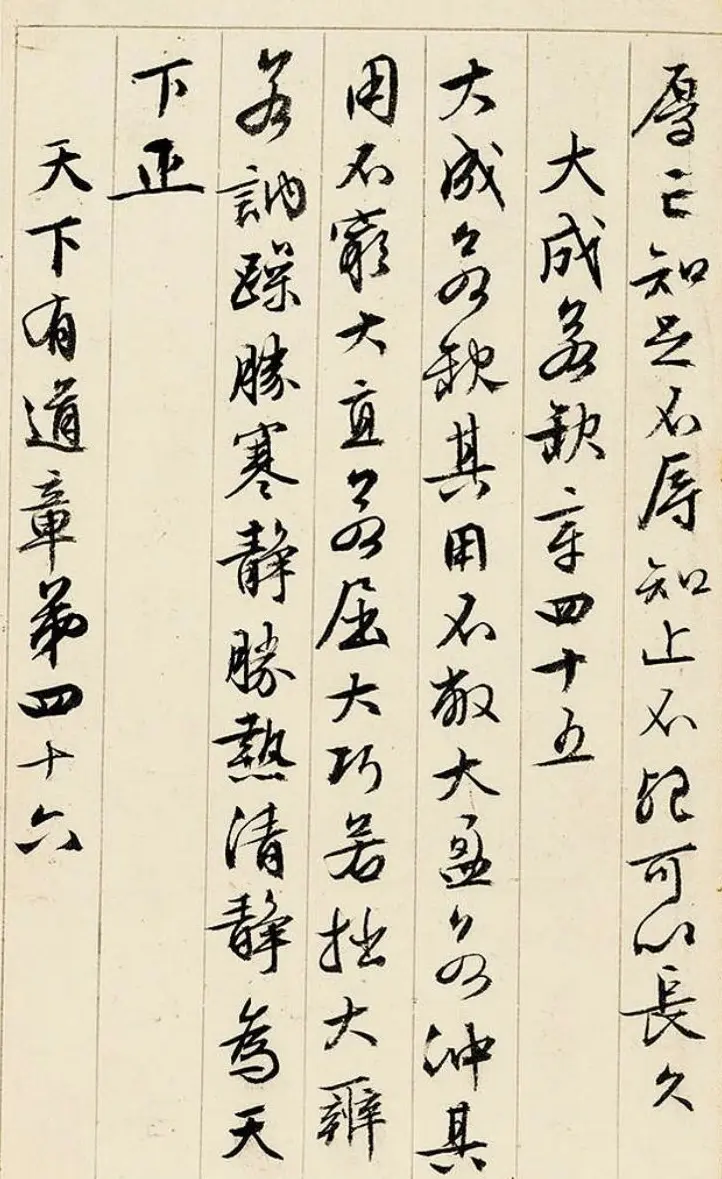 厚亡知足不辱知止不殆可以長久
大成若缺章四十五
大成若缺其用不敝大盈若沖其
用不窮大直若屈大巧若拙大辯
若訥躁勝寒靜勝熱清靜為天
下正
天下有道章第四十六